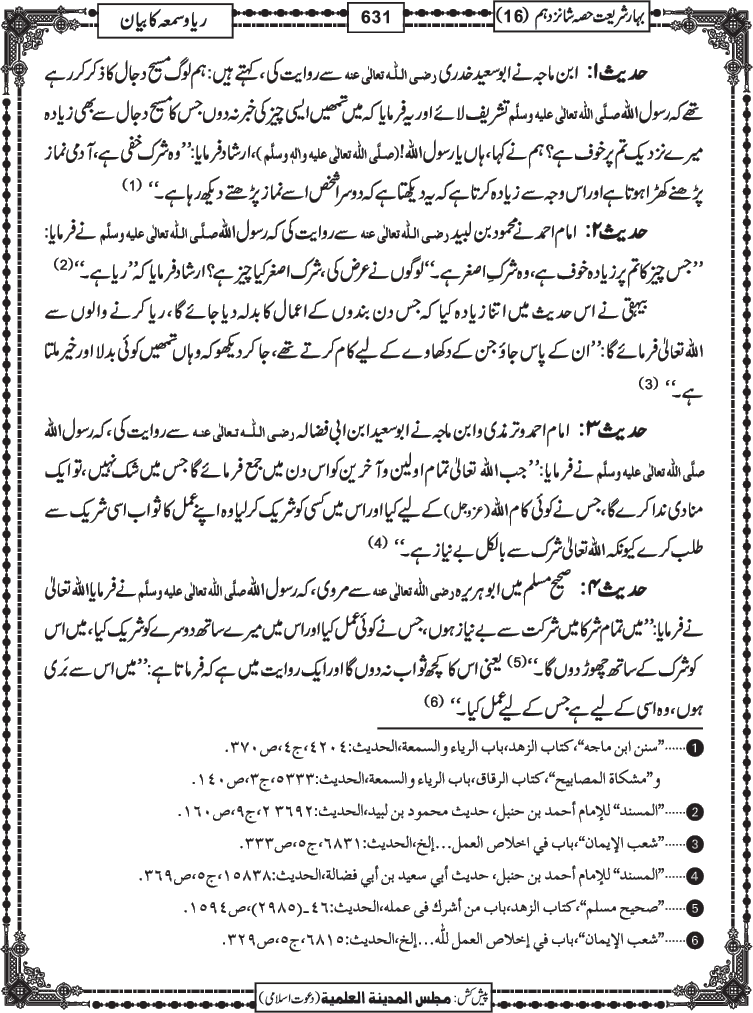 بہار شریعت حصہ شانزدہم (16)
631
ریا و سمعہ کا بیان
حدیث ۱: ابن ماجہ نے ابوسعید خدری رضی اللہ تعالٰی عنہ سے روایت کی، کہتے ہیں: ہم لوگ مسیح دجال کا ذکر کر رہے
تھے کہ رسول اللہ صلَّی اللہ تعالٰی علیہ وسلَّم تشریف لائے اور یہ فرمایا کہ میں تمھیں ایسی چیز کی خبر نہ دوں جس کا مسیح دجال سے بھی زیادہ
میرے نزدیک تم پر خوف ہے؟ ہم نے کہا، ہاں یا رسول اللہ! (صلَّی اللہ تعالٰی علیہ واٰلہٖ وسلَّم)، ارشاد فرمایا: ’’وہ شرک خفی ہے، آدمی نماز
پڑھنے کھڑا ہوتا ہے اور اس وجہ سے زیادہ کرتا ہے کہ یہ دیکھتا ہے کہ دوسرا شخص اسے نماز پڑھتے دیکھ رہا ہے۔‘‘ (1)
حدیث ۲: امام احمد نے محمود بن لبید رضی اللہ تعالٰی عنہ سے روایت کی کہ رسول اللہ صلَّی اللہ تعالٰی علیہ وسلَّم نے فرمایا:
’’جس چیز کا تم پر زیادہ خوف ہے، وہ شرکِ اصغر ہے۔‘‘ لوگوں نے عرض کی، شرک اصغر کیا چیز ہے؟ ارشاد فرمایا کہ ’’ریا ہے۔‘‘ (2)
بیہقی نے اس حدیث میں اتنا زیادہ کیا کہ جس دن بندوں کے اعمال کا بدلہ دیا جائے گا، ریا کرنے والوں سے
اللہ تعالٰی فرمائے گا: ’’ان کے پاس جاؤ جن کے دکھاوے کے لیے کام کرتے تھے، جا کر دیکھو کہ وہاں تمھیں کوئی بدلا اور خیر ملتا
ہے۔‘‘ (3)
حدیث ۳: امام احمد و ترمذی و ابن ماجہ نے ابوسعید ابن ابی فضالہ رضی اللہ تعالٰی عنہ سے روایت کی، کہ رسول اللہ
صلَّی اللہ تعالٰی علیہ وسلَّم نے فرمایا: ’’جب اللہ تعالٰی تمام اولین و آخرین کو اس دن میں جمع فرمائے گا جس میں شک نہیں، تو ایک
منادی ندا کرے گا، جس نے کوئی کام اللہ (عزوجل) کے لیے کیا اور اس میں کسی کو شریک کرلیا وہ اپنے عمل کا ثواب اسی شریک سے
طلب کرے کیونکہ اللہ تعالٰی شرک سے بالکل بے نیاز ہے۔‘‘ (4)
حدیث ۴: صحیح مسلم میں ابوہریرہ رضی اللہ تعالٰی عنہ سے مروی، کہ رسول اللہ صلَّی اللہ تعالٰی علیہ وسلَّم نے فرمایا اللہ تعالٰی
نے فرمایا: ’’میں تمام شرکا میں شرکت سے بے نیاز ہوں، جس نے کوئی عمل کیا اور اس میں میرے ساتھ دوسرے کو شریک کیا، میں اس
کو شرک کے ساتھ چھوڑ دوں گا۔‘‘ (5) یعنی اس کا کچھ ثواب نہ دوں گا اور ایک روایت میں ہے کہ فرماتا ہے: ’’میں اس سے بَری
ہوں، وہ اسی کے لیے ہے جس کے لیے عمل کیا۔‘‘ (6)
1......”سنن ابن ماجه“، كتاب الزهد، باب الرياء والسمعة، الحديث: ٤٢٠٤، ج٤، ص٣٧٠.
و”مشكاة المصابيح“، كتاب الرقاق، باب الرياء والسمعة، الحديث: ٥٣٣٣، ج٣، ص١٤٠.
2......”المسند“ للإمام أحمد بن حنبل، حديث محمود بن لبيد، الحديث: ٢٣٦٩٢، ج٩، ص١٦٠.
3......”شعب الإيمان“، باب في اخلاص العمل...إلخ، الحديث: ٦٨٣١، ج٥، ص٣٣٣.
4......”المسند“ للإمام أحمد بن حنبل، حديث أبي سعيد بن أبي فضالة، الحديث: ١٥٨٣٨، ج٥، ص٣٦٩.
5......”صحيح مسلم“، كتاب الزهد، باب من أشرك فی عمله، الحديث: ٤٦-(٢٩٨٥)، ص١٥٩٤.
6......”شعب الإيمان“، باب في إخلاص العمل للّٰه...إلخ، الحديث: ٦٨١٥، ج٥، ص٣٢٩.
پیش کش: مجلس المدینة العلمیة (دعوت اسلامی)